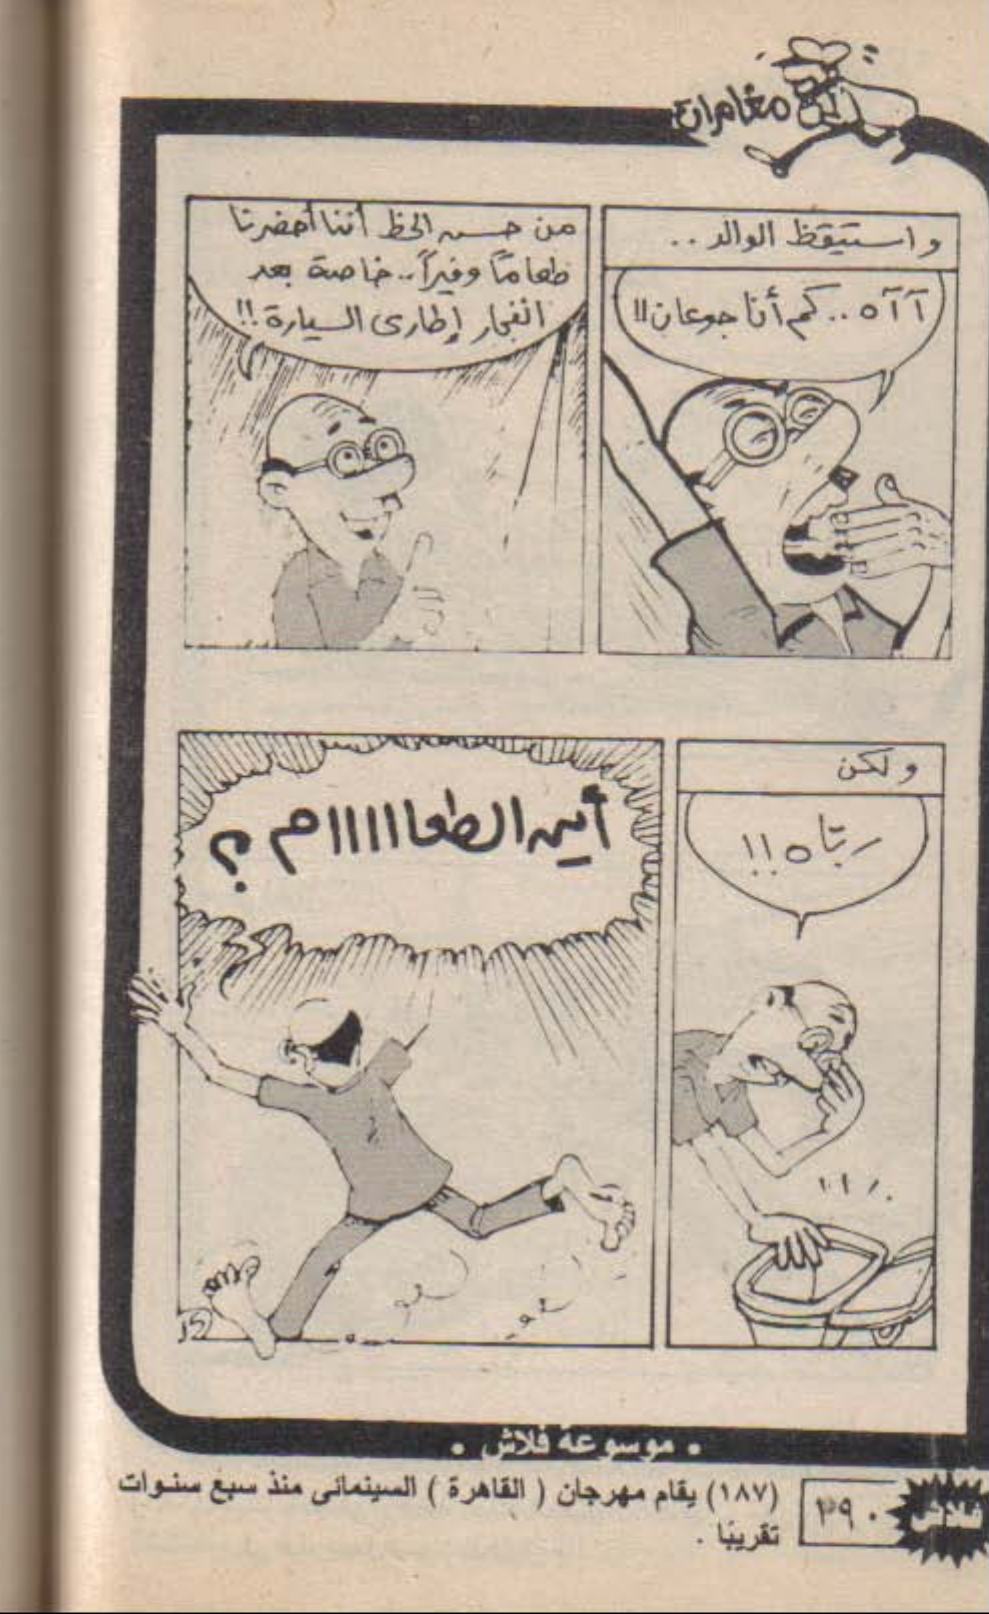 مغامرات
واستيقظ الوالد ..
آ آ ه .. كم أنا جوعان !!
من حسن الحظ أننا أحضرنا
طعاماً وفيراً .. خاصة بعد
انفجار إطارى السيارة !!
ولكن
ربّاه !!
أين الطعااااام ؟
• موسوعة فلاش •
فلاش
٢٩٠
(١٨٧) يقام مهرجان ( القاهرة ) السينمائى منذ سبع سنوات
تقريبًا .